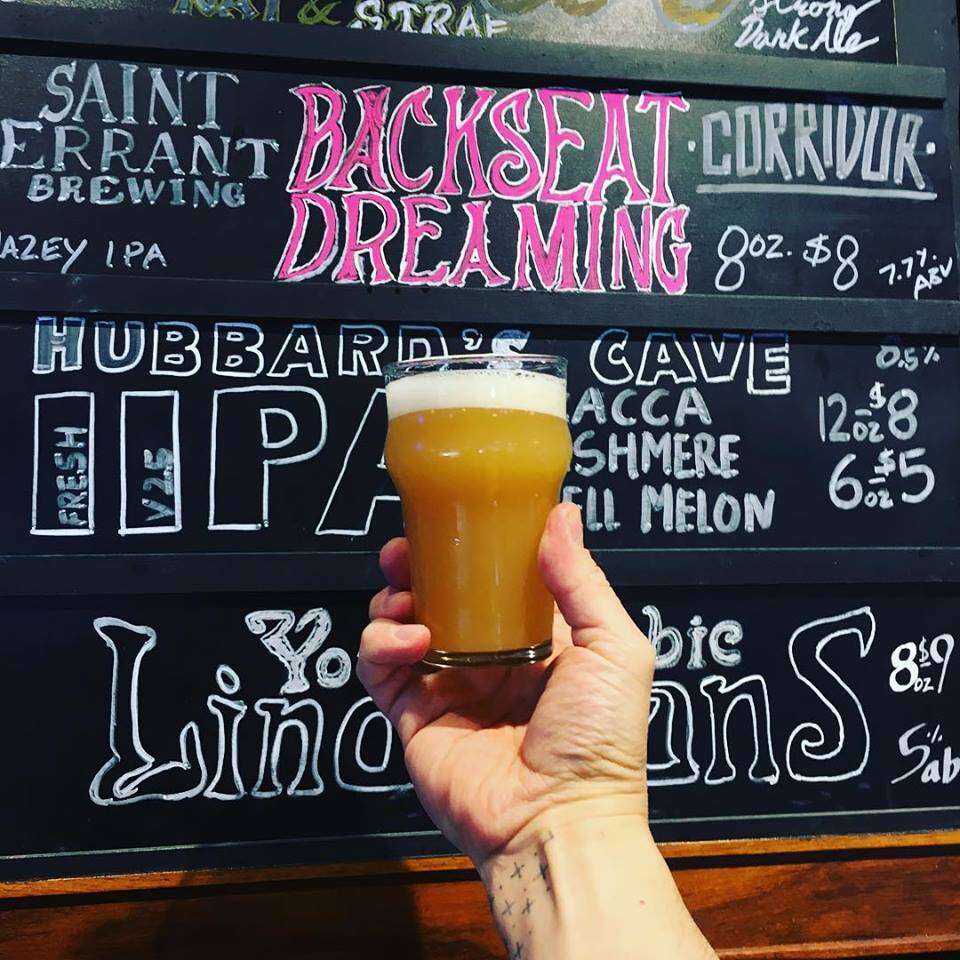 & STRAF
Strong
Dark Ale
SAINT
ERRANT
BREWING
AZEY IPA
BACKSEAT
DREAMING
·CORRIDOR·
8OZ. $8
7.7%
ABV
HUBBARD'S CAVE
IIPA
FRESH
V2.5
ACCA
SHMERE
ELL MELON
0.5%
12oz $8
6oz $5
Yo bic
Lind ans
8oz $9
5%
ab